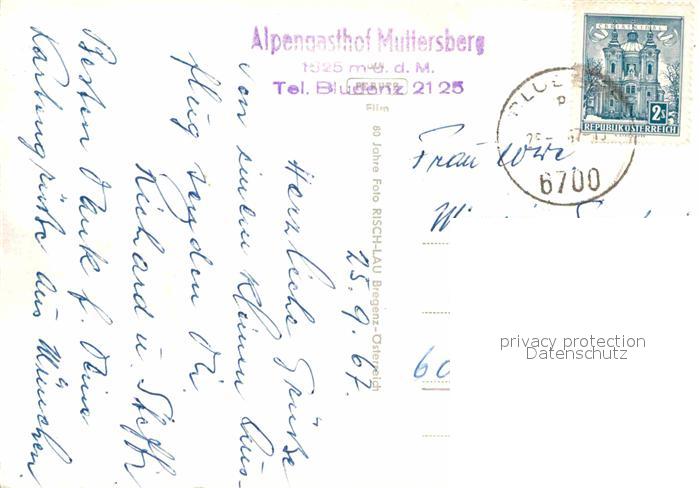 Alpengasthof Muttersberg
1025 m ü. d. M.
Tel. Bludenz 21 25
Film
60 Jahre Foto RISCH-LAU Bregenz-Österreich
CHRISTKINDL
2S
REPUBLIK ÖSTERREICH
BLUDENZ
6700
25. 9. 67.
Herzliche Grüße
von einem kleinen Aus-
flug senden Dir
Richard u. Steffi
Besten Dank f. Deine
Kartengrüße aus München.
Frau
60
privacy protection
Datenschutz